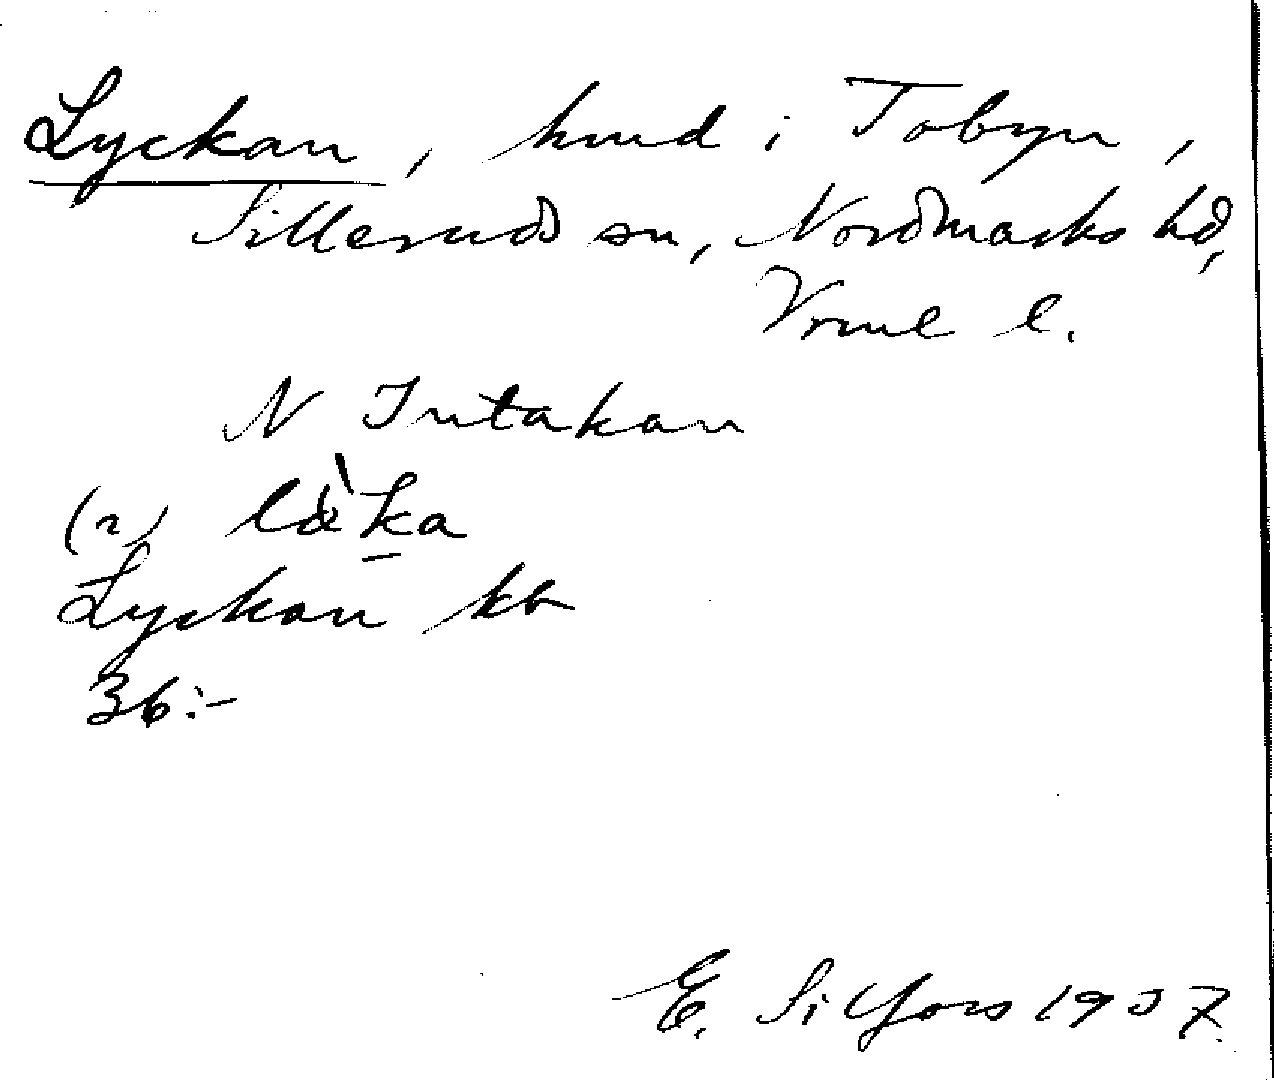 Lyckan, hmd i Tobyn,
Silleruds sn, Nordmarks hd,
Vrml l.
N Intakan
(2) lø̀ka
Lyckan kb
36:-
E. Silfors 1937